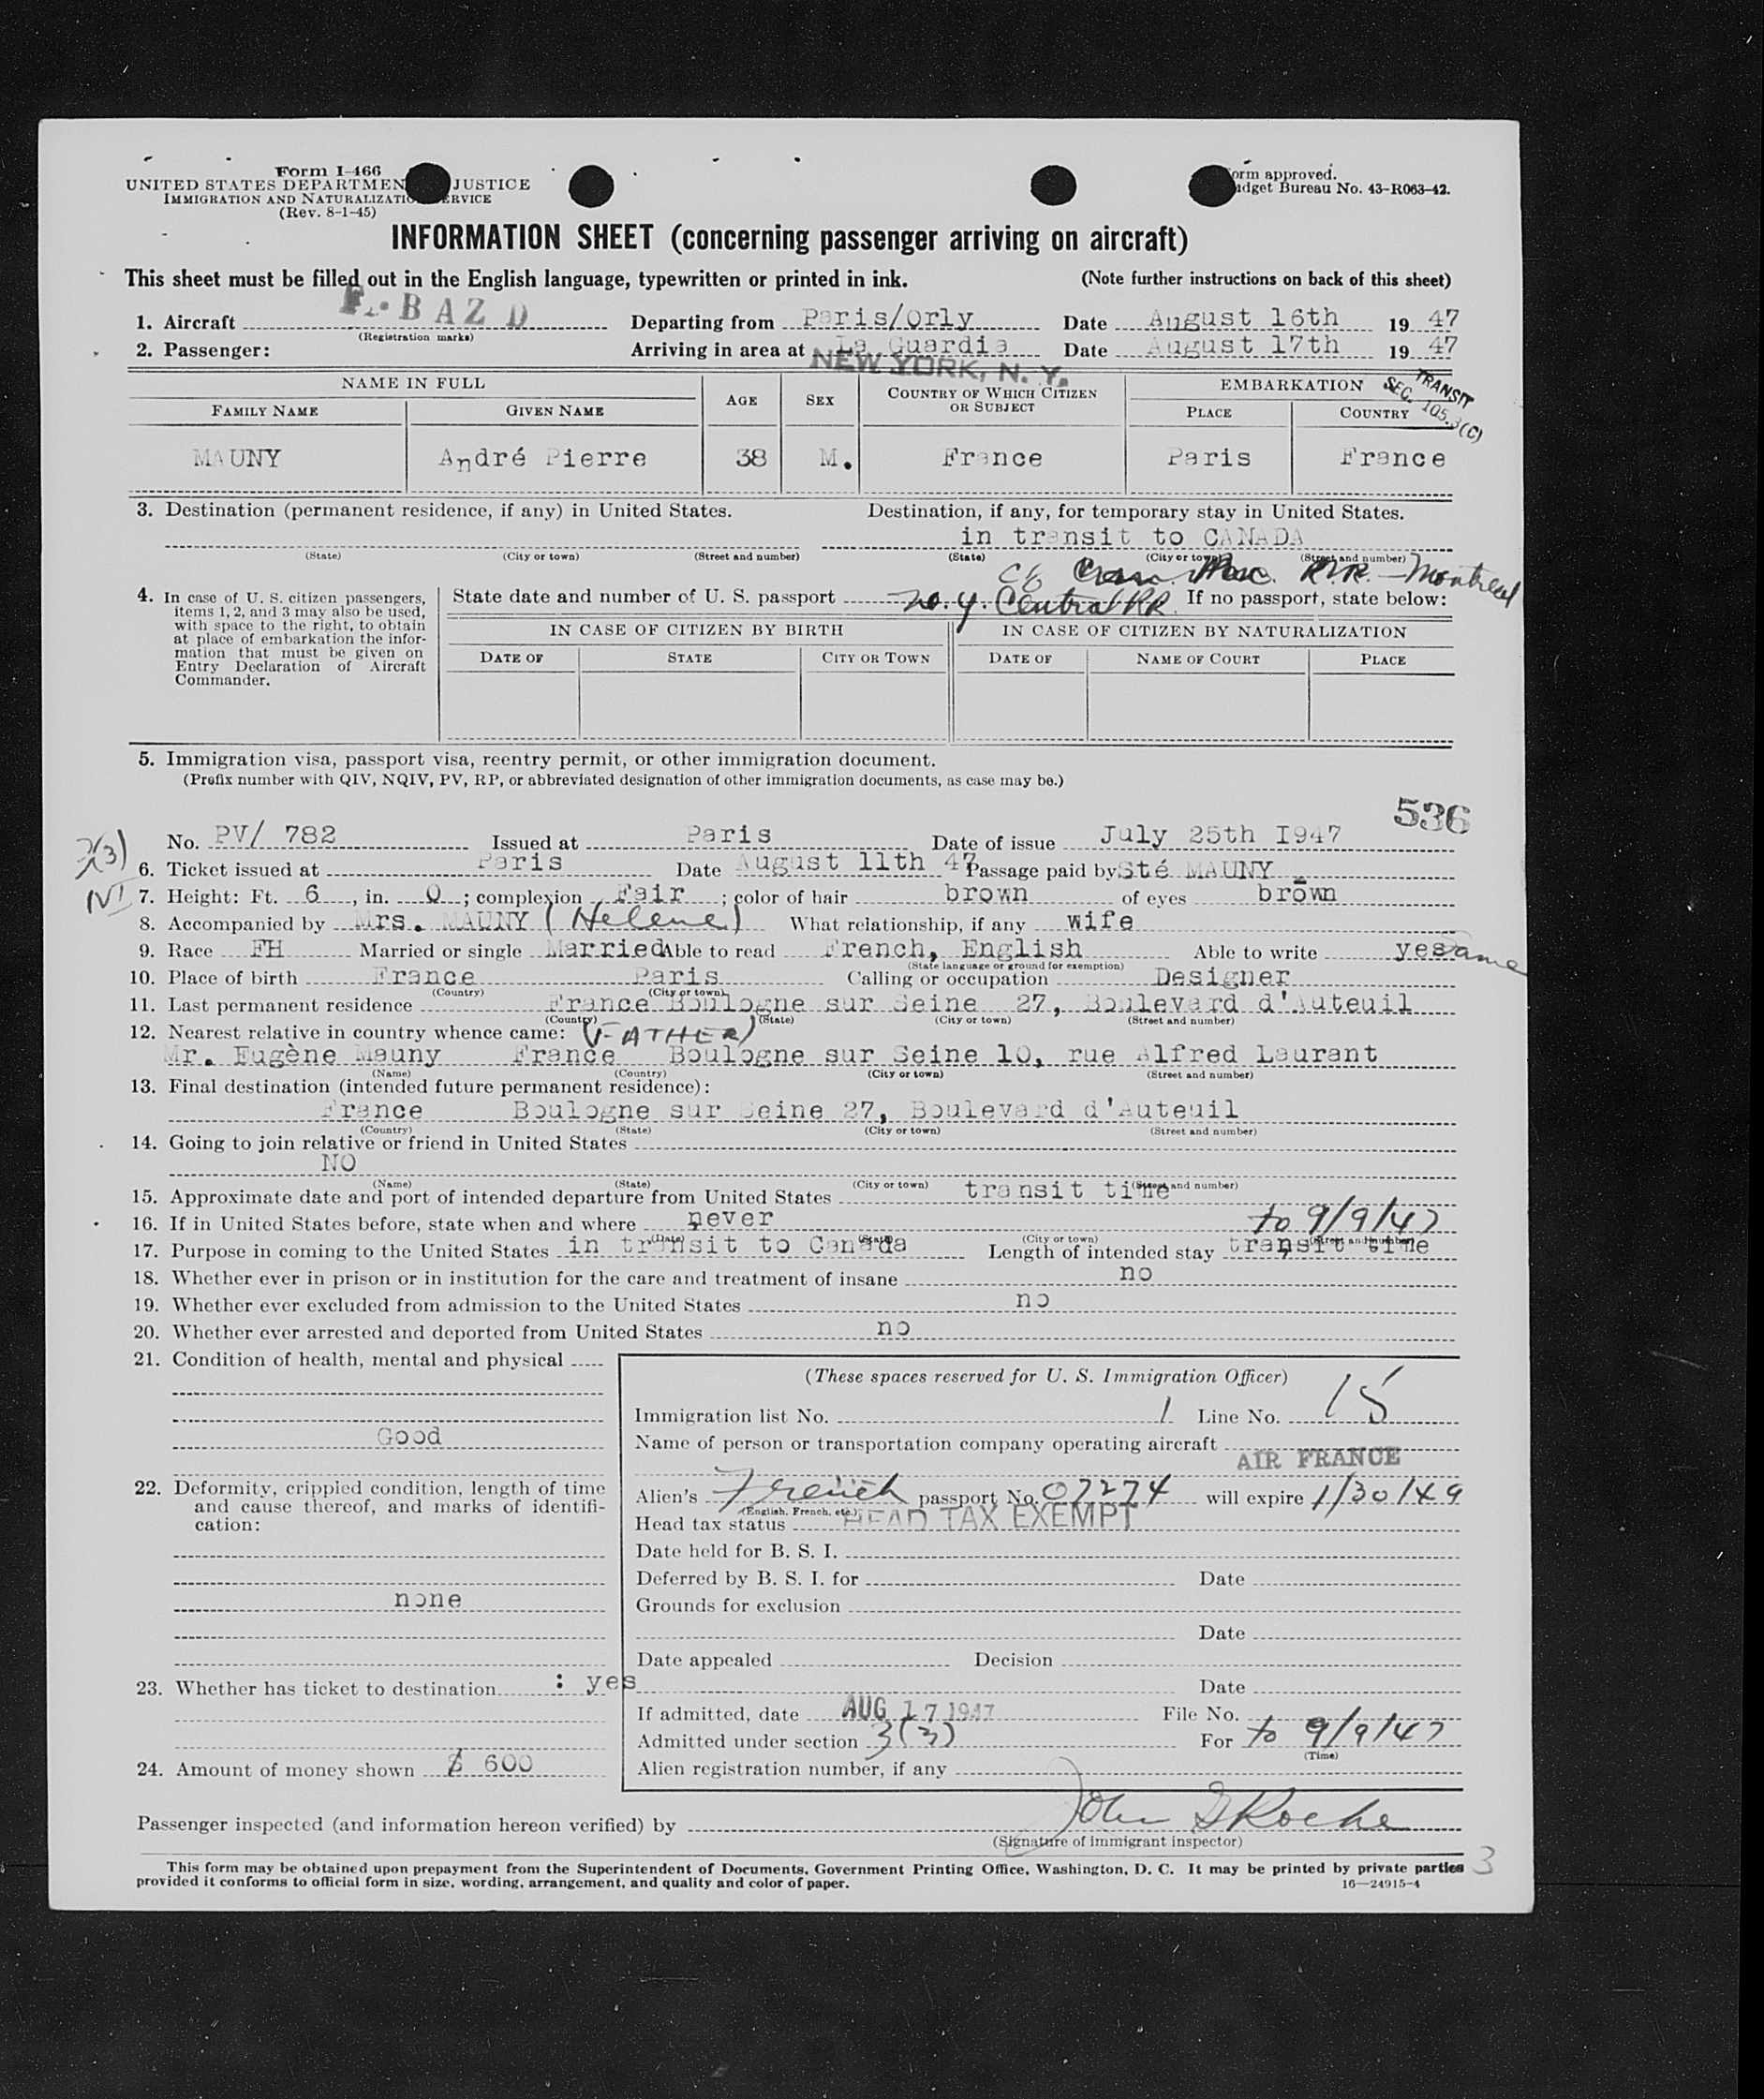 Form I-466
UNITED STATES DEPARTMEN JUSTICE
IMMIGRATION AND NATURALIZATIO ERVICE
(Rev. 8-1-45)
orm approved.
dget Bureau No. 43-R063-42.
INFORMATION SHEET (concerning passenger arriving on aircraft)
This sheet must be filled out in the English language, typewritten or printed in ink. (Note further instructions on back of this sheet)
1. Aircraft F.BAZD Departing from Paris/Orly Date August 16th 19 47
(Registration marks)
2. Passenger: Arriving in area at La Guardia Date August 17th 19 47
NEW YORK, N. Y.
TRANSIT
SEC. 105.3(C)
NAME IN FULL AGE SEX COUNTRY OF WHICH CITIZEN OR SUBJECT EMBARKATION
FAMILY NAME GIVEN NAME PLACE COUNTRY
MAUNY André Pierre 38 M. France Paris France
3. Destination (permanent residence, if any) in United States. Destination, if any, for temporary stay in United States.
in transit to CANADA
(State) (City or town) (Street and number) (State) (City or town) (Street and number)
R.R. - Montreal
4. In case of U. S. citizen passengers, items 1, 2, and 3 may also be used, with space to the right, to obtain at place of embarkation the information that must be given on Entry Declaration of Aircraft Commander.
State date and number of U. S. passport N.Y. Central RR. If no passport, state below:
IN CASE OF CITIZEN BY BIRTH IN CASE OF CITIZEN BY NATURALIZATION
DATE OF STATE CITY OR TOWN DATE OF NAME OF COURT PLACE
5. Immigration visa, passport visa, reentry permit, or other immigration document.
(Prefix number with QIV, NQIV, PV, RP, or abbreviated designation of other immigration documents, as case may be.)
536
No. PV/ 782 Issued at Paris Date of issue July 25th I947
3(3)
6. Ticket issued at Paris Date August 11th 47 Passage paid by Sté MAUNY
NI
7. Height: Ft. 6, in. 0; complexion Fair; color of hair brown of eyes brown
8. Accompanied by Mrs. MAUNY (Helene) What relationship, if any wife
9. Race FH Married or single Married Able to read French, English Able to write yes same
(State language or ground for exemption)
10. Place of birth France Paris Calling or occupation Designer
(Country) (City or town)
11. Last permanent residence France Boulogne sur Seine 27, Boulevard d'Auteuil
(Country) (State) (City or town) (Street and number)
12. Nearest relative in country whence came: (FATHER)
Mr. Eugène Mauny France Boulogne sur Seine 10, rue Alfred Laurant
(Name) (Country) (City or town) (Street and number)
13. Final destination (intended future permanent residence):
France Boulogne sur Seine 27, Boulevard d'Auteuil
(Country) (State) (City or town) (Street and number)
14. Going to join relative or friend in United States
NO
(Name) (State) (City or town) (Street and number)
15. Approximate date and port of intended departure from United States transit time
16. If in United States before, state when and where never to 9/9/47
(Date) (State) (City or town) (Street and number)
17. Purpose in coming to the United States in transit to Canada Length of intended stay transit time
18. Whether ever in prison or in institution for the care and treatment of insane no
19. Whether ever excluded from admission to the United States no
20. Whether ever arrested and deported from United States no
21. Condition of health, mental and physical
Good
22. Deformity, crippled condition, length of time and cause thereof, and marks of identification:
none
23. Whether has ticket to destination : yes
24. Amount of money shown $ 600
(These spaces reserved for U. S. Immigration Officer)
Immigration list No. 1 Line No. 15
Name of person or transportation company operating aircraft
AIR FRANCE
Alien's French passport No. 07274 will expire 1/30/49
(English, French, etc.)
Head tax status HEAD TAX EXEMPT
Date held for B. S. I.
Deferred by B. S. I. for Date
Grounds for exclusion
Date
Date appealed Decision
Date
If admitted, date AUG 17 1947 File No.
Admitted under section 3(3) For to 9/9/47
(Time)
Alien registration number, if any
Passenger inspected (and information hereon verified) by John S Roche
(Signature of immigrant inspector)
This form may be obtained upon prepayment from the Superintendent of Documents, Government Printing Office, Washington, D. C. It may be printed by private parties
provided it conforms to official form in size, wording, arrangement, and quality and color of paper. 16—24915-4
3